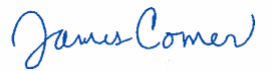 James Comer